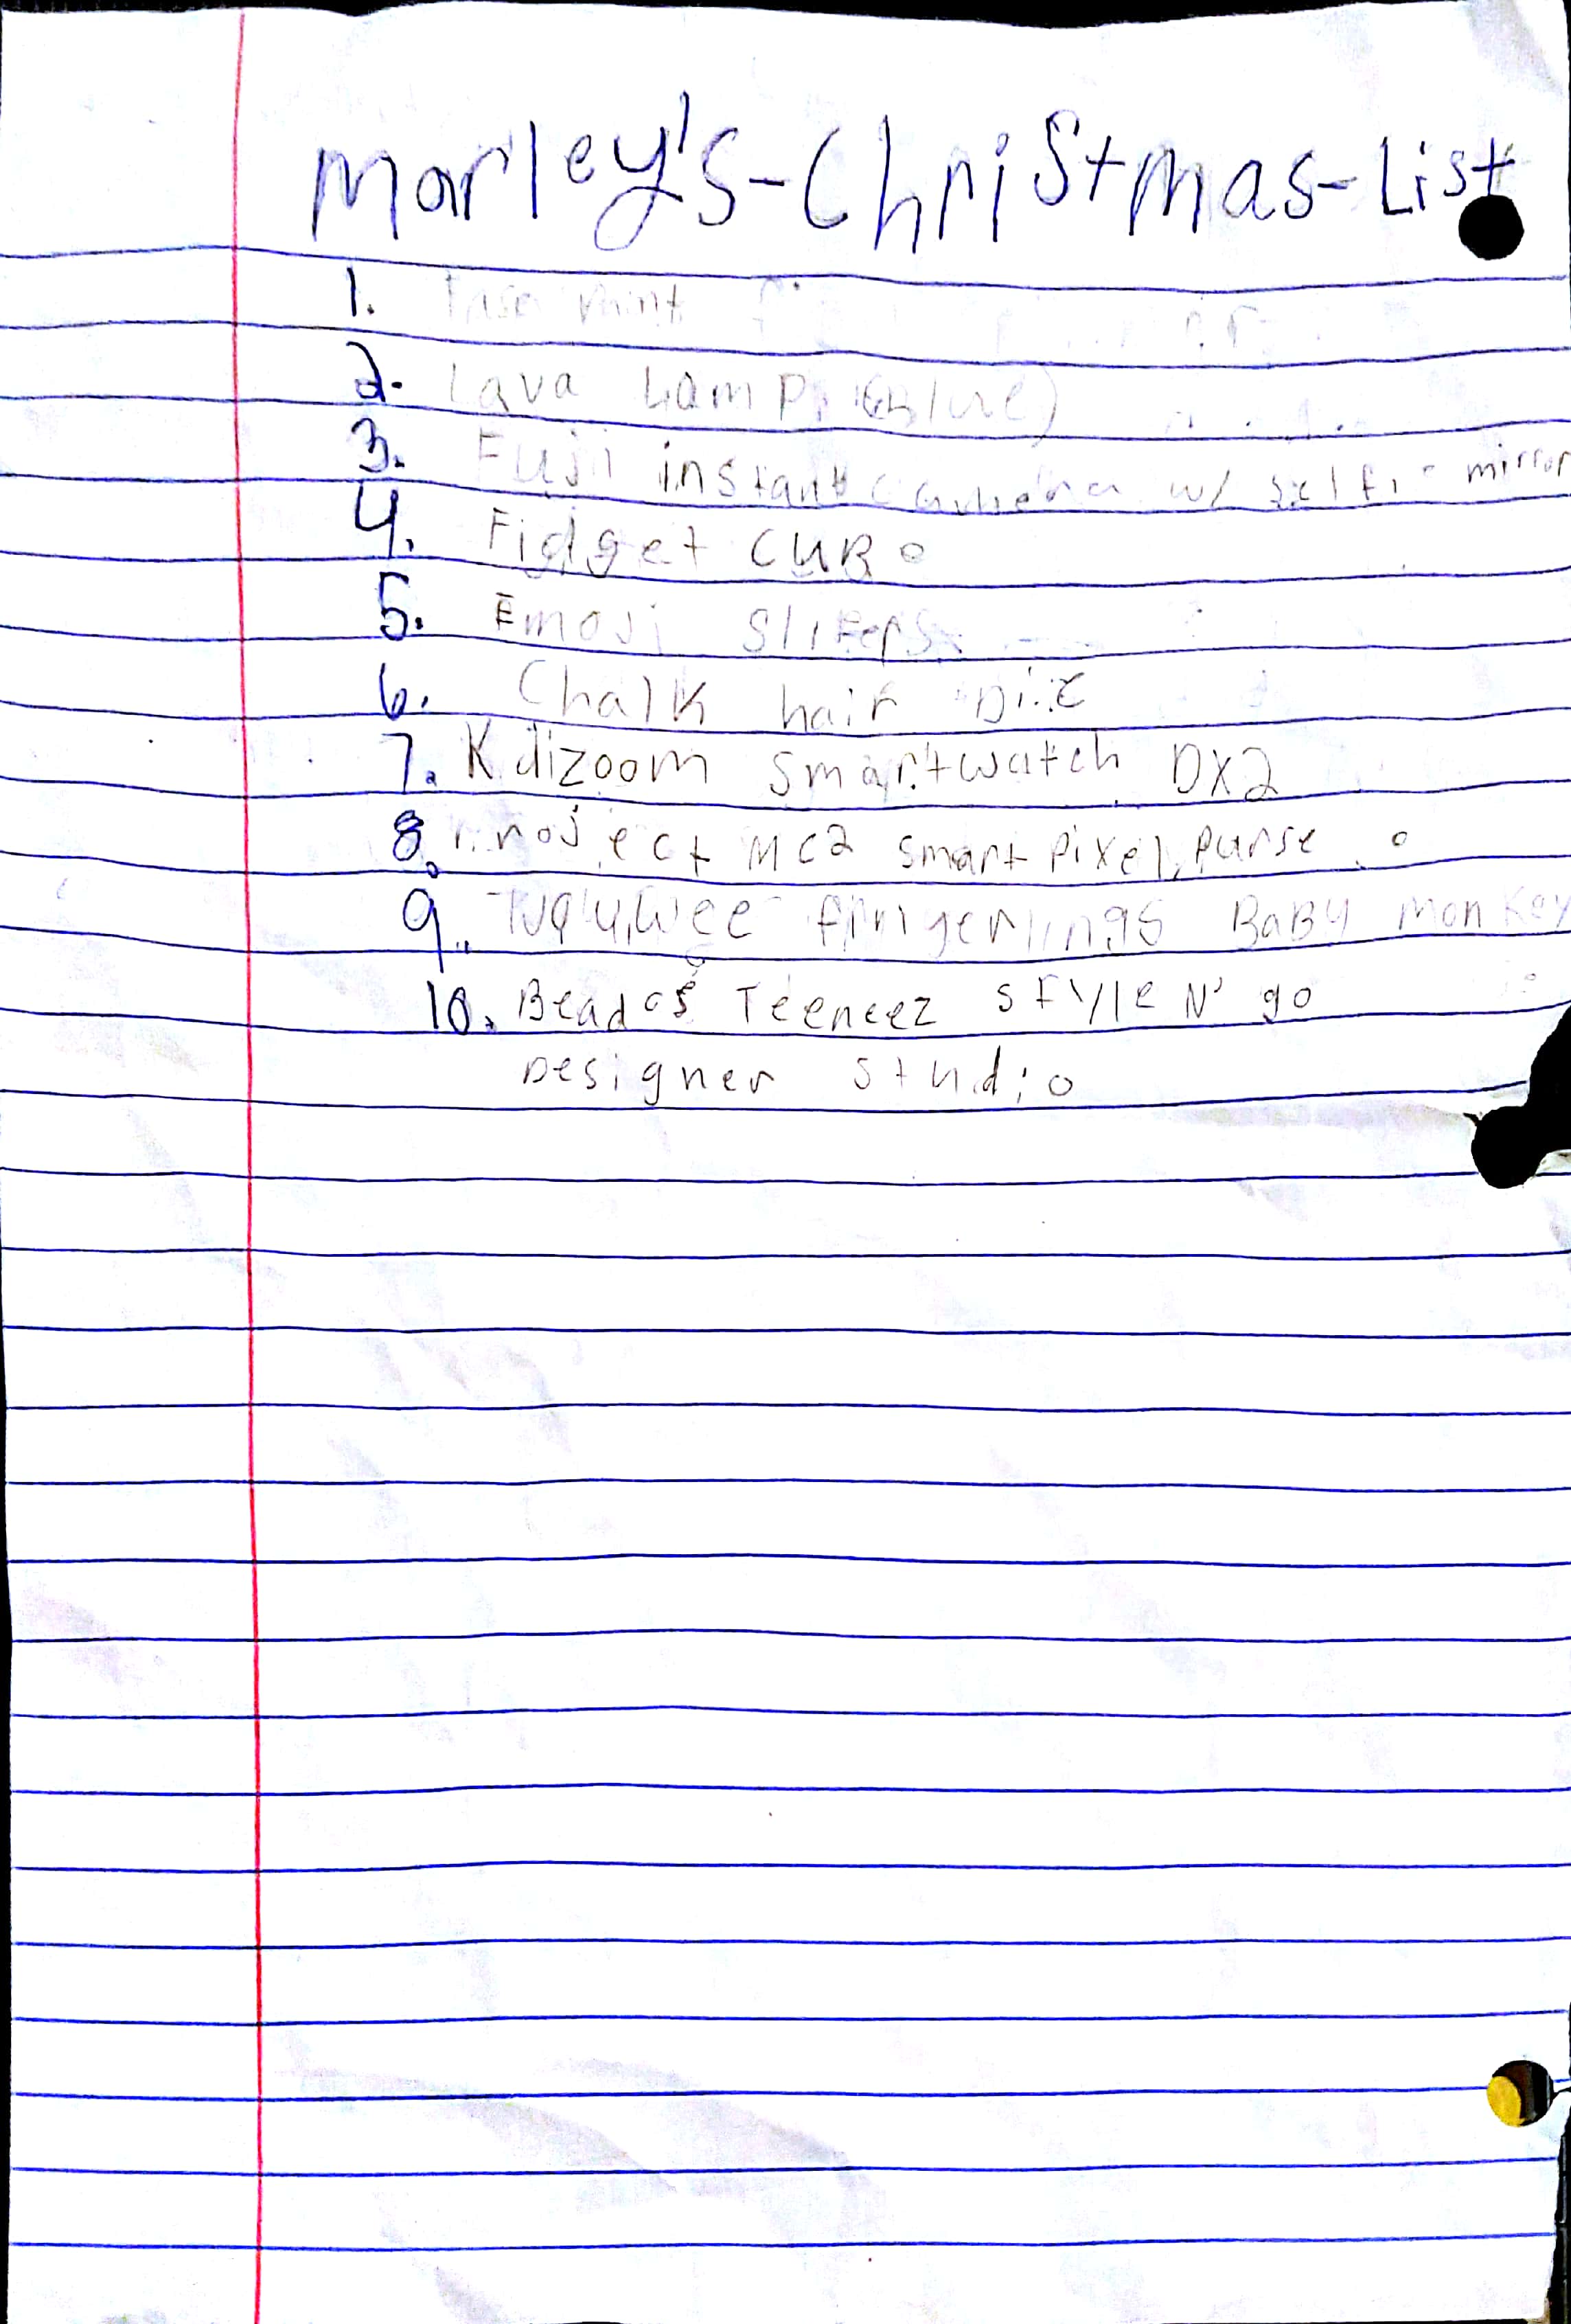 Morley's-Christmas-List
1.
2. Lava Lamp (Blue)
3. Fuji instant camera w/ selfi mirror
4. Fidget CUBe
5. Emoji Slifers
6. Chalk hair Die
7. Kdizoom smartwatch DX2
8. Project MC2 smart pixel purse
9. fingerlings BaBy monkey
10. Beados Teeneez style N' go
Designer studio